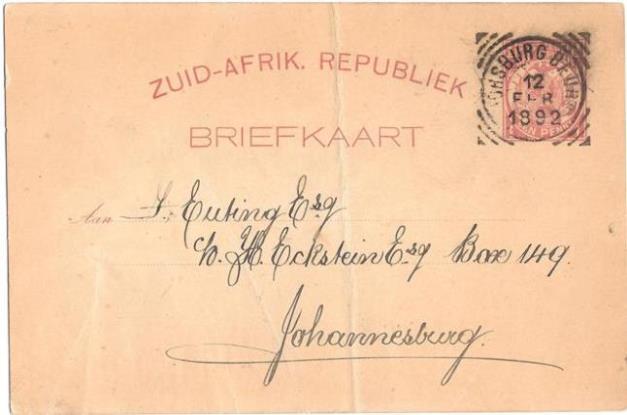 ZUID-AFRIK. REPUBLIEK
BRIEFKAART
12
FEB
1892
EEN PENNY
Aan
Euting Esq
H. Eckstein Esq Box 149.
Johannesburg.